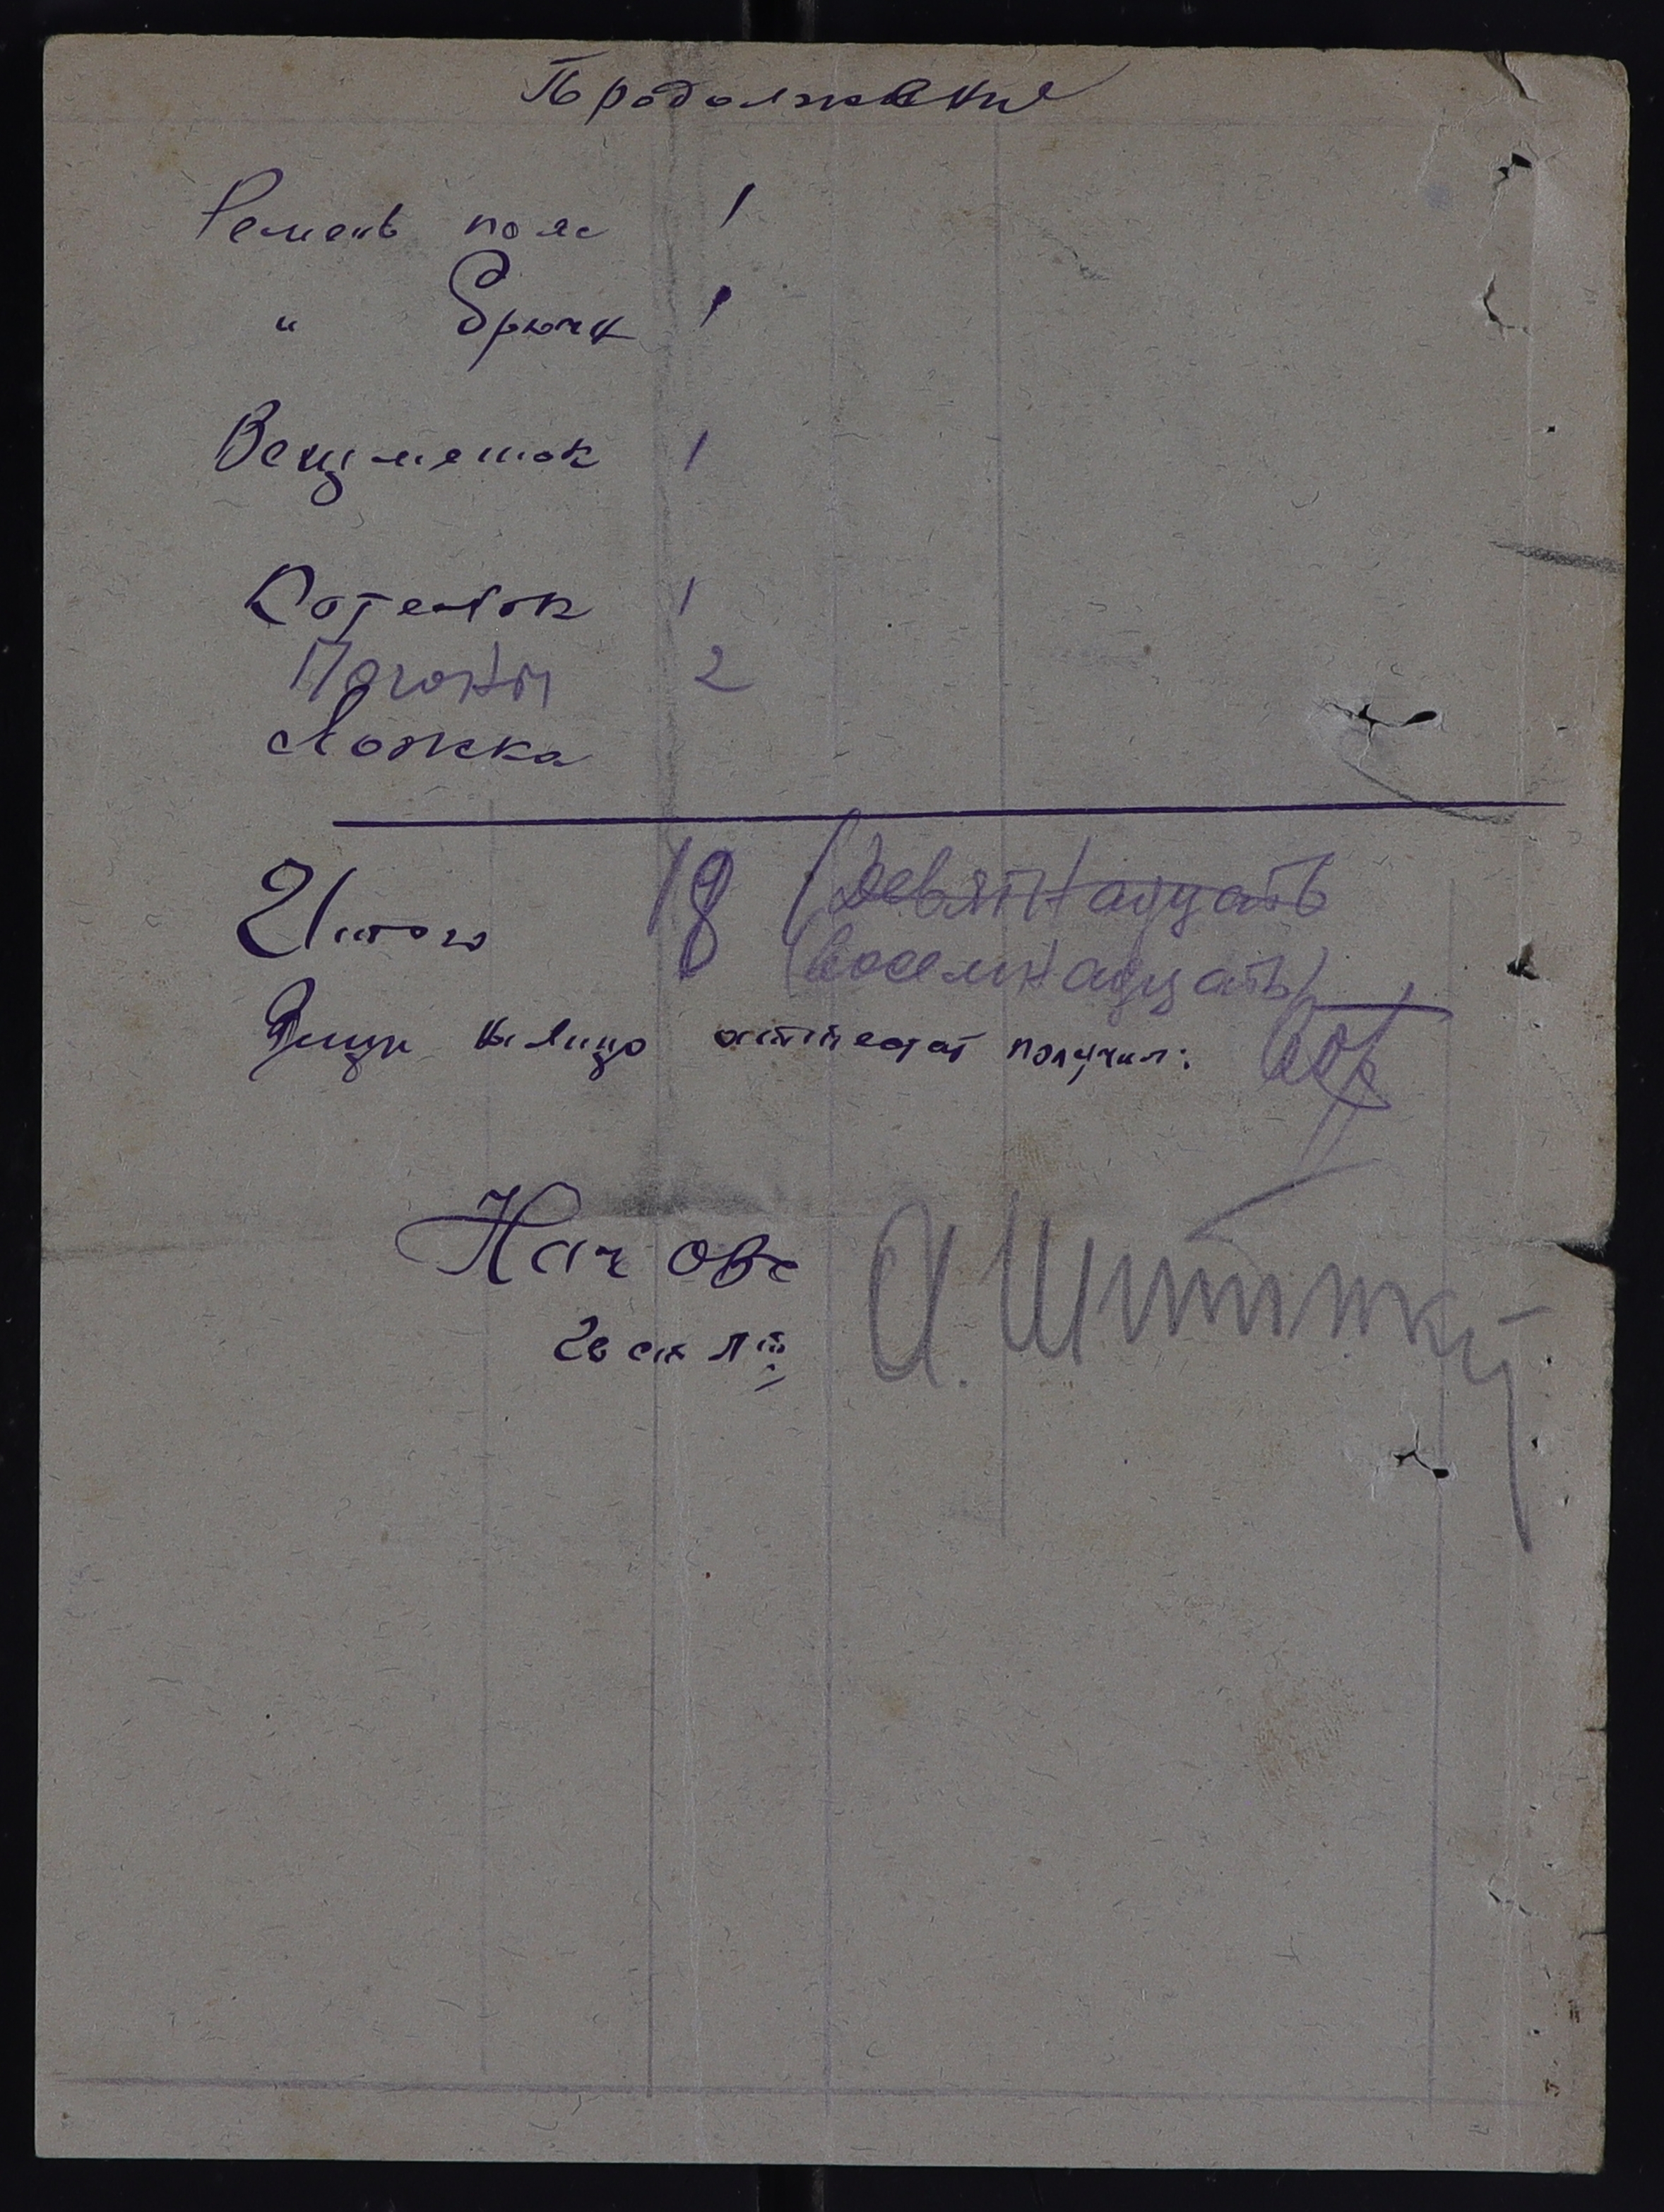 Продолжение
Ремень пояс 1
" брючн 1
Вещмешок 1
Котелок 1
Погоны 2
Ложка
Итого 18 (Девятнадцать
(восемнадцать)
Вещи аттестат получил:
Нач ОВС
Гв ст л-т
А.